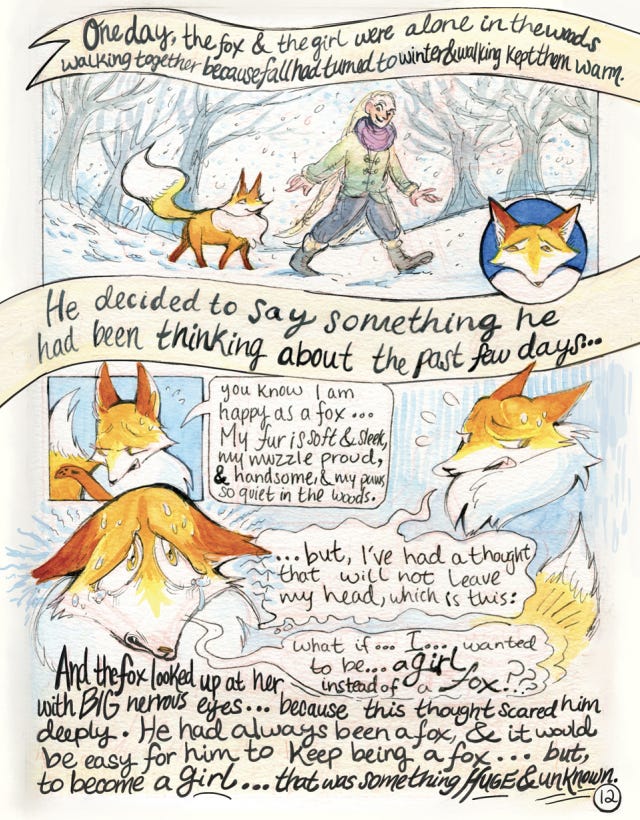 One day, the fox & the girl were alone in the woods
walking together because fall had turned to winter & walking kept them warm.
He decided to say something he
had been thinking about the past few days...
you know I am
happy as a fox...
My fur is soft & sleek,
my muzzle proud,
& handsome, & my paws
so quiet in the woods.
...but, I've had a thought
that will not leave
my head, which is this:
what if... I... wanted
to be... a girl
instead of a fox...??
And the fox looked up at her
with BIG nervous eyes... because this thought scared him
deeply. He had always been a fox, & it would
be easy for him to keep being a fox... but,
to become a girl... that was something HUGE & unknown.
12